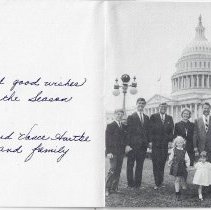 good wishes
the Season
Vance Hartke
and family